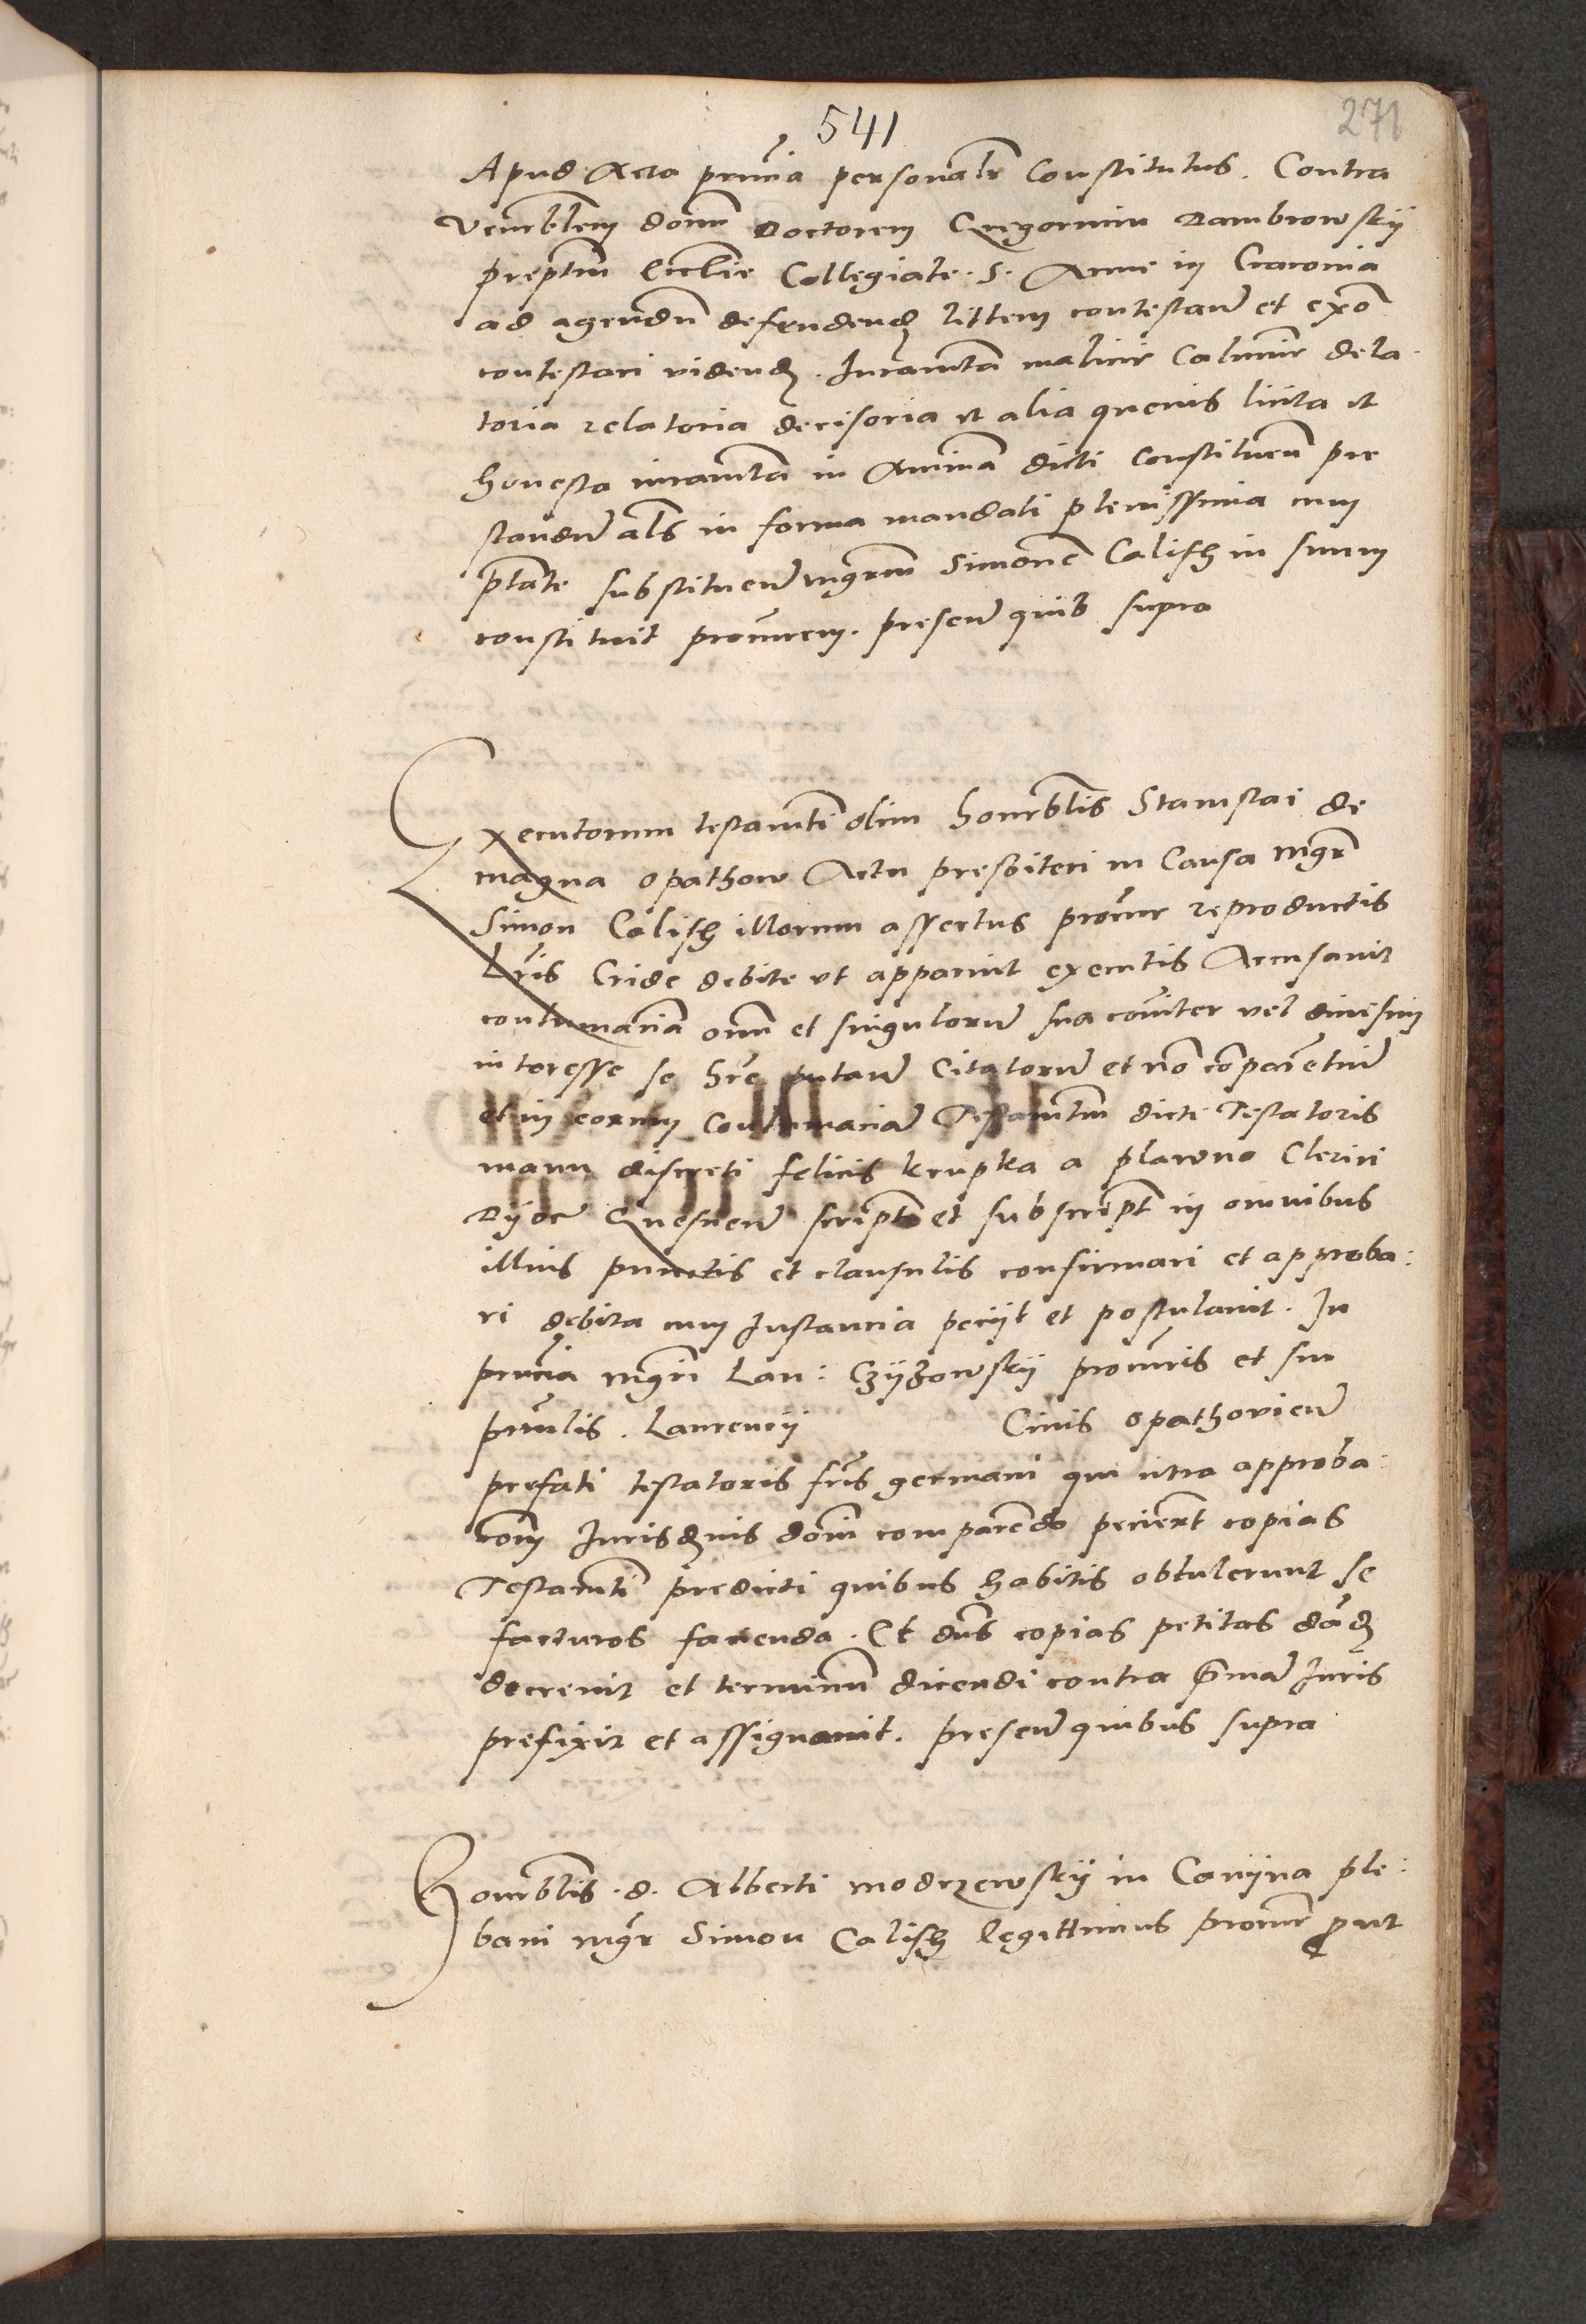 541
271
Apud Acta prntia personalr Constitutus. Contra
Venrblem dom Doctorem Gregorium Dambrowskij
preptum Ecclie Collegiate. S. Anne in Cracovia
ad agendu defendend littem contestan et exo
contestari vidend. Juramta malicie Calunie dela
toria relatoria decisoria et alia quevis licita et
honesta iuramta in Animа dicti Constituen pre
standu als in forma mandati plenissima cum
ptate substituen mgrm Simone Calisch in suum
constituit procurem. presen quib supra
Executorum testamti olim honrblis Stanislai de
magna opathow Actu presbiteri in Causa mgr
Simon Calisch illorum assertus procur reproductis
Lris Cride debite ut apparuit executis Accusavit
contumacia omn et singuloru sua coniter vel divisim
interesse se hre putan Citatoru et no comparentiu
et in eorum Contumacia Testamtum dicti Testatoris
manu discreti felicis krupka a plawno Clerici
Dijoc Gnesnen script et subscript in omnibus
illius punctis et clausulis confirmari et approba:
ri debita cum Instancia pecijt et postulavit. In
prntia mgri Lau: Czijzowskij procuris et sui
prnlis. Laurencij Civis opathovien
prefati testatoris fris germani qui citra approba:
com Jurisdnis domi comparendo pecierut copias
Testamti predicti quibus habitis obtulerunt se
facturos facienda. Et dns copias petitas dad
decrevit et terminum dicendi contra pma Juris
prefixit et assignavit. presen quibus supra
Honrblis. d. Alberti modrzewskij in Conijna ple:
bani mgr Simon Calisch legittimus procur put